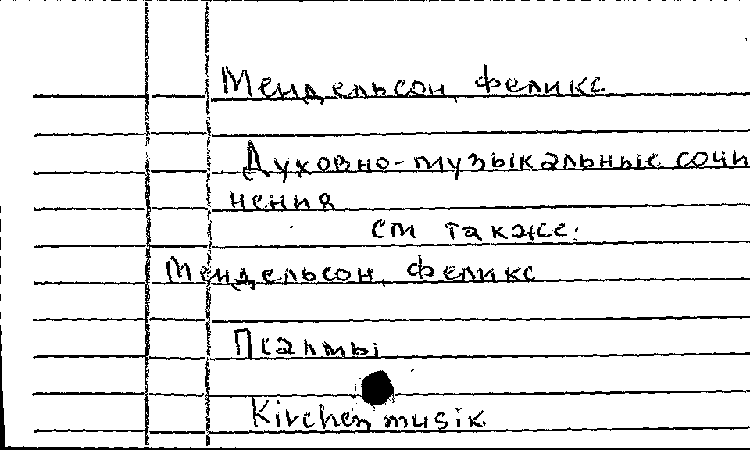 Мендельсон, Феликс
Духовно-музыкальные сочи
нения
см также:
Мендельсон, Феликс
Псалмы
Kirchenmusik